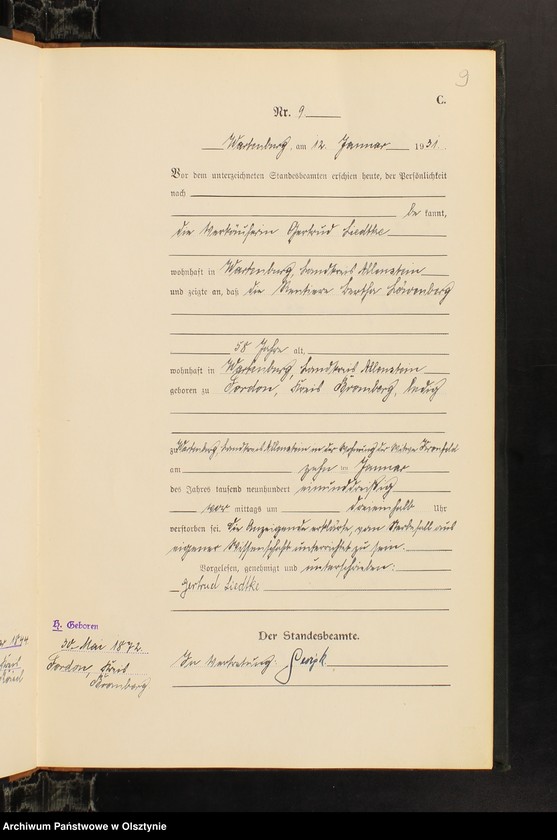 9
C.
Nr. 9
Wartenburg, am 12. Januar 1931.
Vor dem unterzeichneten Standesbeamten erschien heute, der Persönlichkeit
nach
be kannt,
die Verkäuferin Gertrud Liedtke
wohnhaft in Wartenburg, Landkreis Allenstein
und zeigte an, daß die Rentiere Bertha Löwenberg
58 Jahre alt,
wohnhaft in Wartenburg, Landkreis Allenstein
geboren zu Fordon, Kreis Bromberg, ledig
zu Wartenburg, Landkreis Allenstein in der Wohnung der Witwe
am zehn ten Januar
des Jahres tausend neunhundert einunddreißig
vor mittags um dreieinhalb Uhr
verstorben sei. Die Anzeigende erklärte, vom Sterbefall aus
eigener Wissenschaft unterrichtet zu sein.
Vorgelesen, genehmigt und unterschrieben:
Gertrud Liedtke
Der Standesbeamte.
In Vertretung:
H. Geboren
30. Mai 1872.
Fordon, Kreis
Bromberg
1894
Archiwum Państwowe w Olsztynie